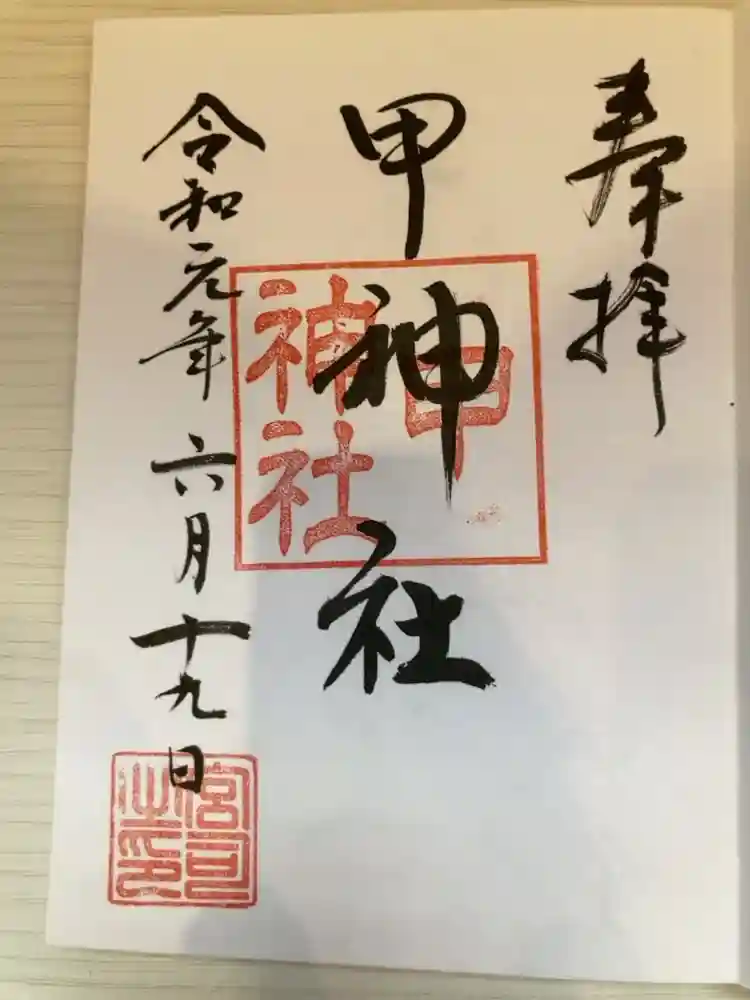 奉拝
甲神社
甲神社
令和元年六月十九日
宮司之印